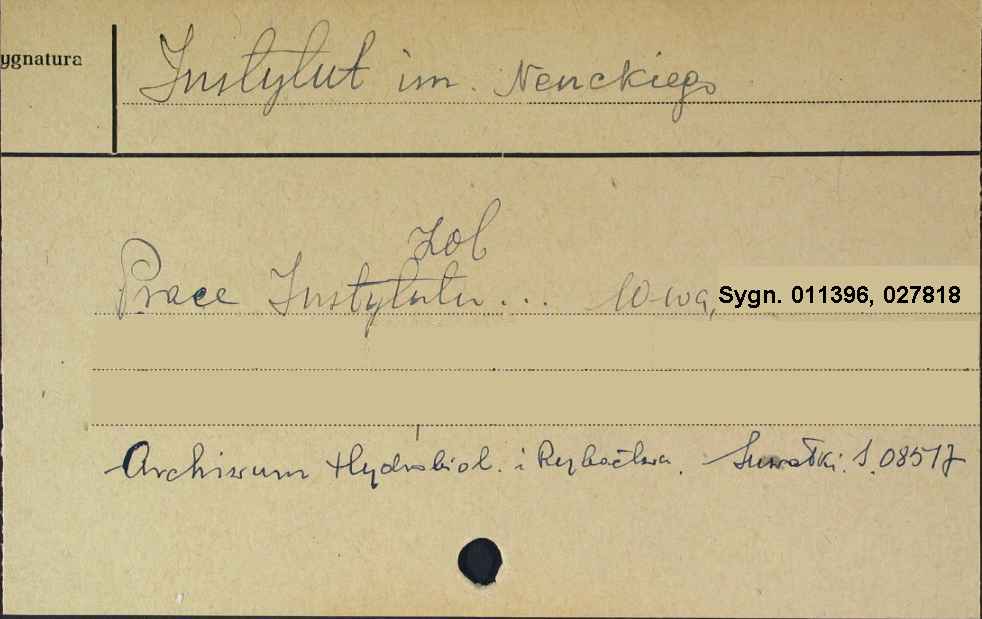 ygnatura
Instytut im. Nenckiego
Zob
Prace Instytutu... W-wa, Sygn. 011396, 027818
Archiwum Hydrobiol. i Rybactwa. Suwałki. S. 08517